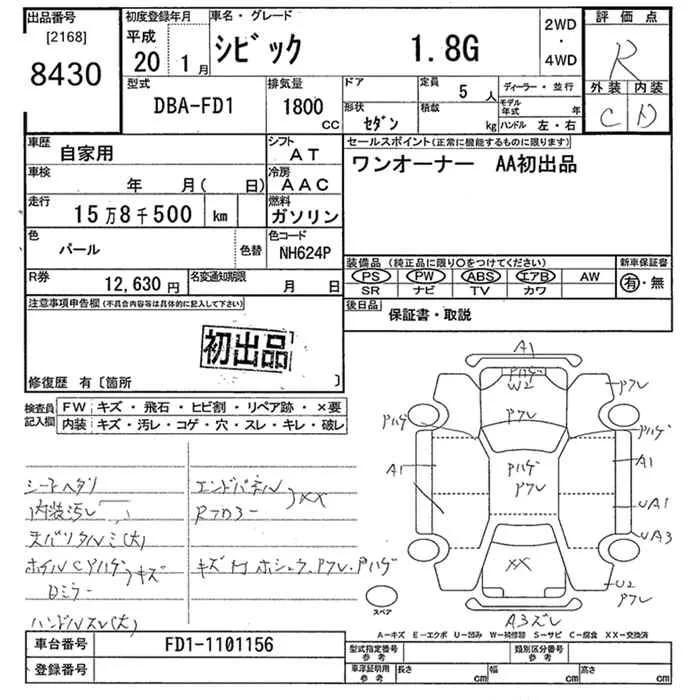 出品番号
[2168]
8430
初度登録年月
平成
20 1月
車名・グレード
シビック 1.8G
2WD
・
4WD
評価点
R
外装 内装
C D
型式
DBA-FD1
排気量
1800
CC
ドア
形状
セダン
定員
5人
積載
kg
ディーラー・並行
モデル年式 年
ハンドル 左・右
車歴
自家用
シフト
AT
車検
年 月( 日)
冷房
AAC
走行
15万8千500 km
燃料
ガソリン
色
パール
色替
色コード
NH624P
R券
12,630円
名変通知期限
月 日
セールスポイント(正常に機能するものに限ります)
ワンオーナー AA初出品
装備品(純正品に限り○をつけてください)
PS PW ABS エアB AW
SR ナビ TV カワ
新車保証書
有・無
後日品
保証書・取説
注意事項申告欄(不具合内容等は具体的に記入して下さい)
初出品
修復歴 有〔箇所 〕
検査員記入欄
FW キズ・飛石・ヒビ割・リペア跡・×要
内装 キズ・汚レ・コゲ・穴・スレ・キレ・破レ
シートヘタリ
内装汚レ
天バリタルミ(大)
ホイルCPハゲ キズ
Dミラー
ハンドルスレ(大)
エンドパネル
Rフロアー
XX
キズ凹 PフレPハゲ
A1
Pハゲ
W2
Pフレ
Pフレ
Pハゲ
Pハゲ
A1
A1
Pハゲ
Pフレ
UA1
UA3
XX
U2
Pフレ
A3ズレ
スペア
A−キズ E−エクボ U−凹み W−補修跡 S−サビ C−腐食 XX−交換済
車台番号
FD1-1101156
登録番号
型式指定番号
参考
類別区分番号
参考
車庫証明用
参考
長さ cm
幅 cm
高さ cm